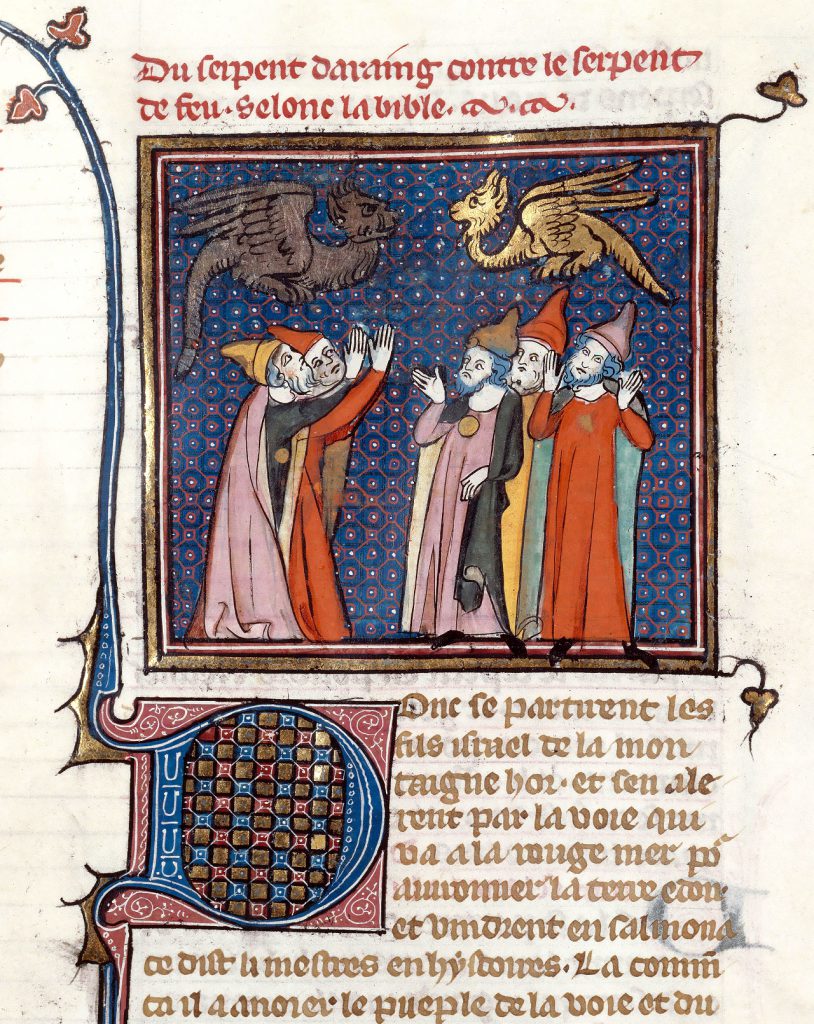 Du serpent daraing contre le serpent
de feu. Selonc la bible.
Donc se partirent les
fils israel de la mon
taigne hor. et sen ale
rent par la voie qui
va a la rouge mer po᷑
auironner la terre edom
et vindrent en salmona
ce dist li mestres en hystoires. La comm̄
ca il a anoier le pueple de la voie et du